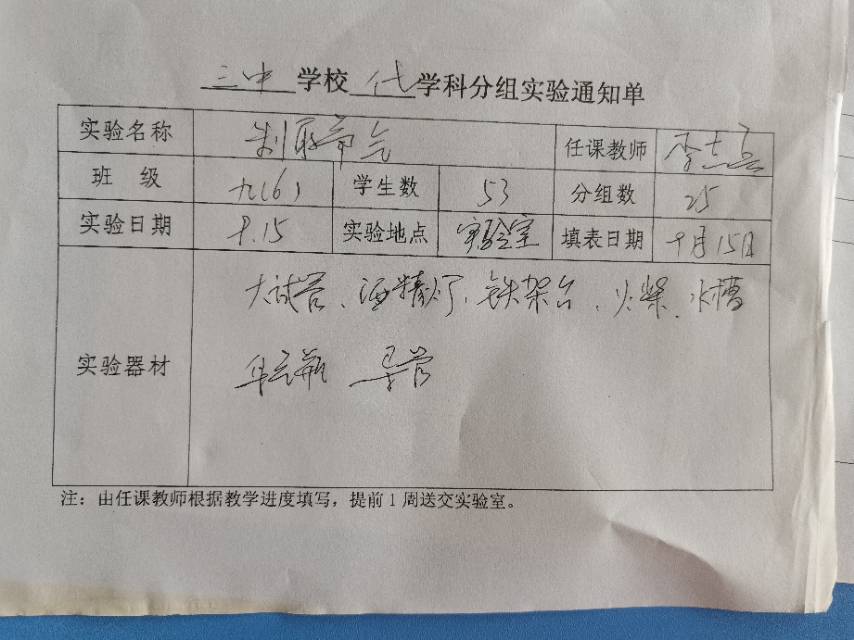 三中 学校 化 学科分组实验通知单
实验名称 制取氧气 任课教师 李志
班 级 九(6) 学生数 53 分组数 25
实验日期 9.15 实验地点 实验室 填表日期 9月15日
大试管、酒精灯、铁架台、火柴、水槽
实验器材 集气瓶 导管
注：由任课教师根据教学进度填写，提前1周送交实验室。